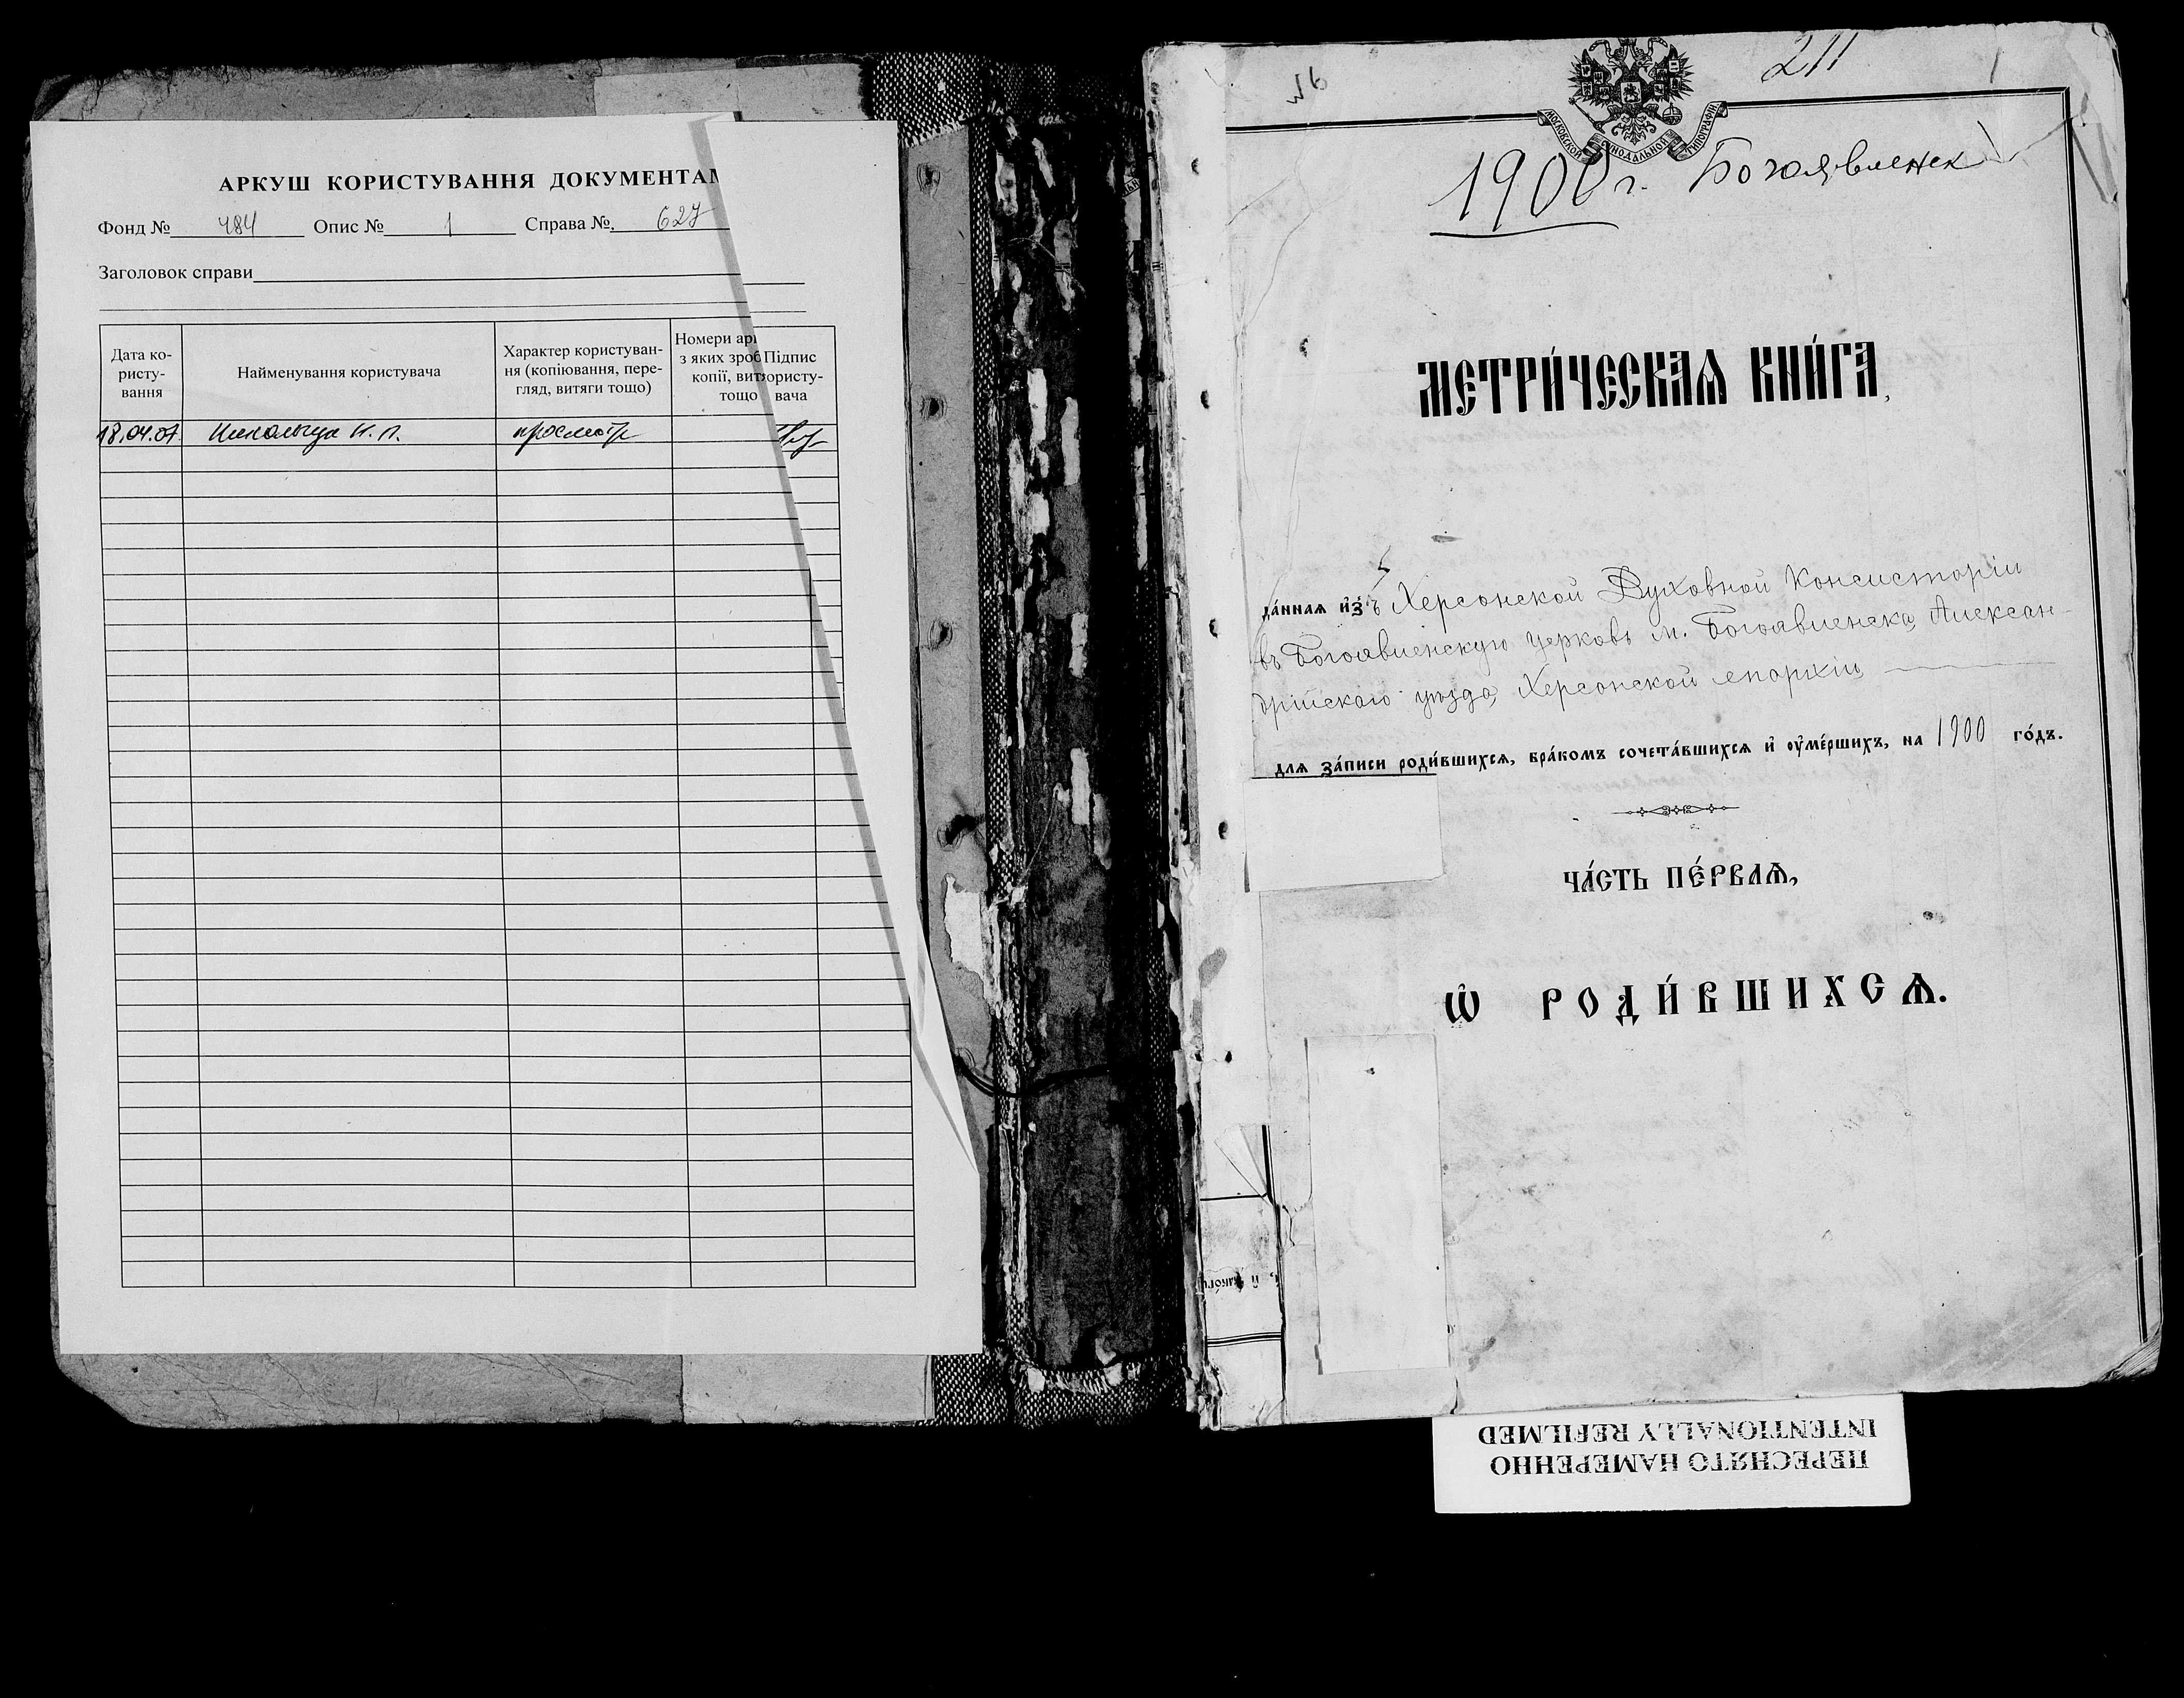 АРКУШ КОРИСТУВАННЯ ДОКУМЕНТАМ
Фонд № 484 Опис № 1 Справа № 627
Заголовок справи
Дата ко-
ристу-
вання
Найменування користувача
Характер користуван-
ня (копіювання, пере-
гляд, витяги тощо)
Номери
з яких зроб
копії, вит
тощо
Підпис
користу-
вача
18.04.07. просмотр
211
1
МОСКОВСКОЙ СѴНОДАЛЬНОЙ ТИПОГРАФІИ
1900 г. Богоявленск
МЕТРИ́ЧЕСКАѦ КНИ́ГА,
да́ннаѧ и҆зъ Херсонской Духовной Консисторіи
въ Богоявленскую церковь м. Богоявленска, Алексан-
дрійскаго уѣзда, Херсонской епархіи
длѧ за́писи роди́вшихсѧ, бра́комъ сочета́вшихсѧ и҆ ᲂу҆ме́ршихъ, на 1900 го́дъ.
ЧА́СТЬ ПЕ́РВАѦ,
Ѽ РОДИ́ВШИХСѦ.
ПЕРЕСНЯТО НАМЕРЕННО
INTENTIONALLY REFILMED